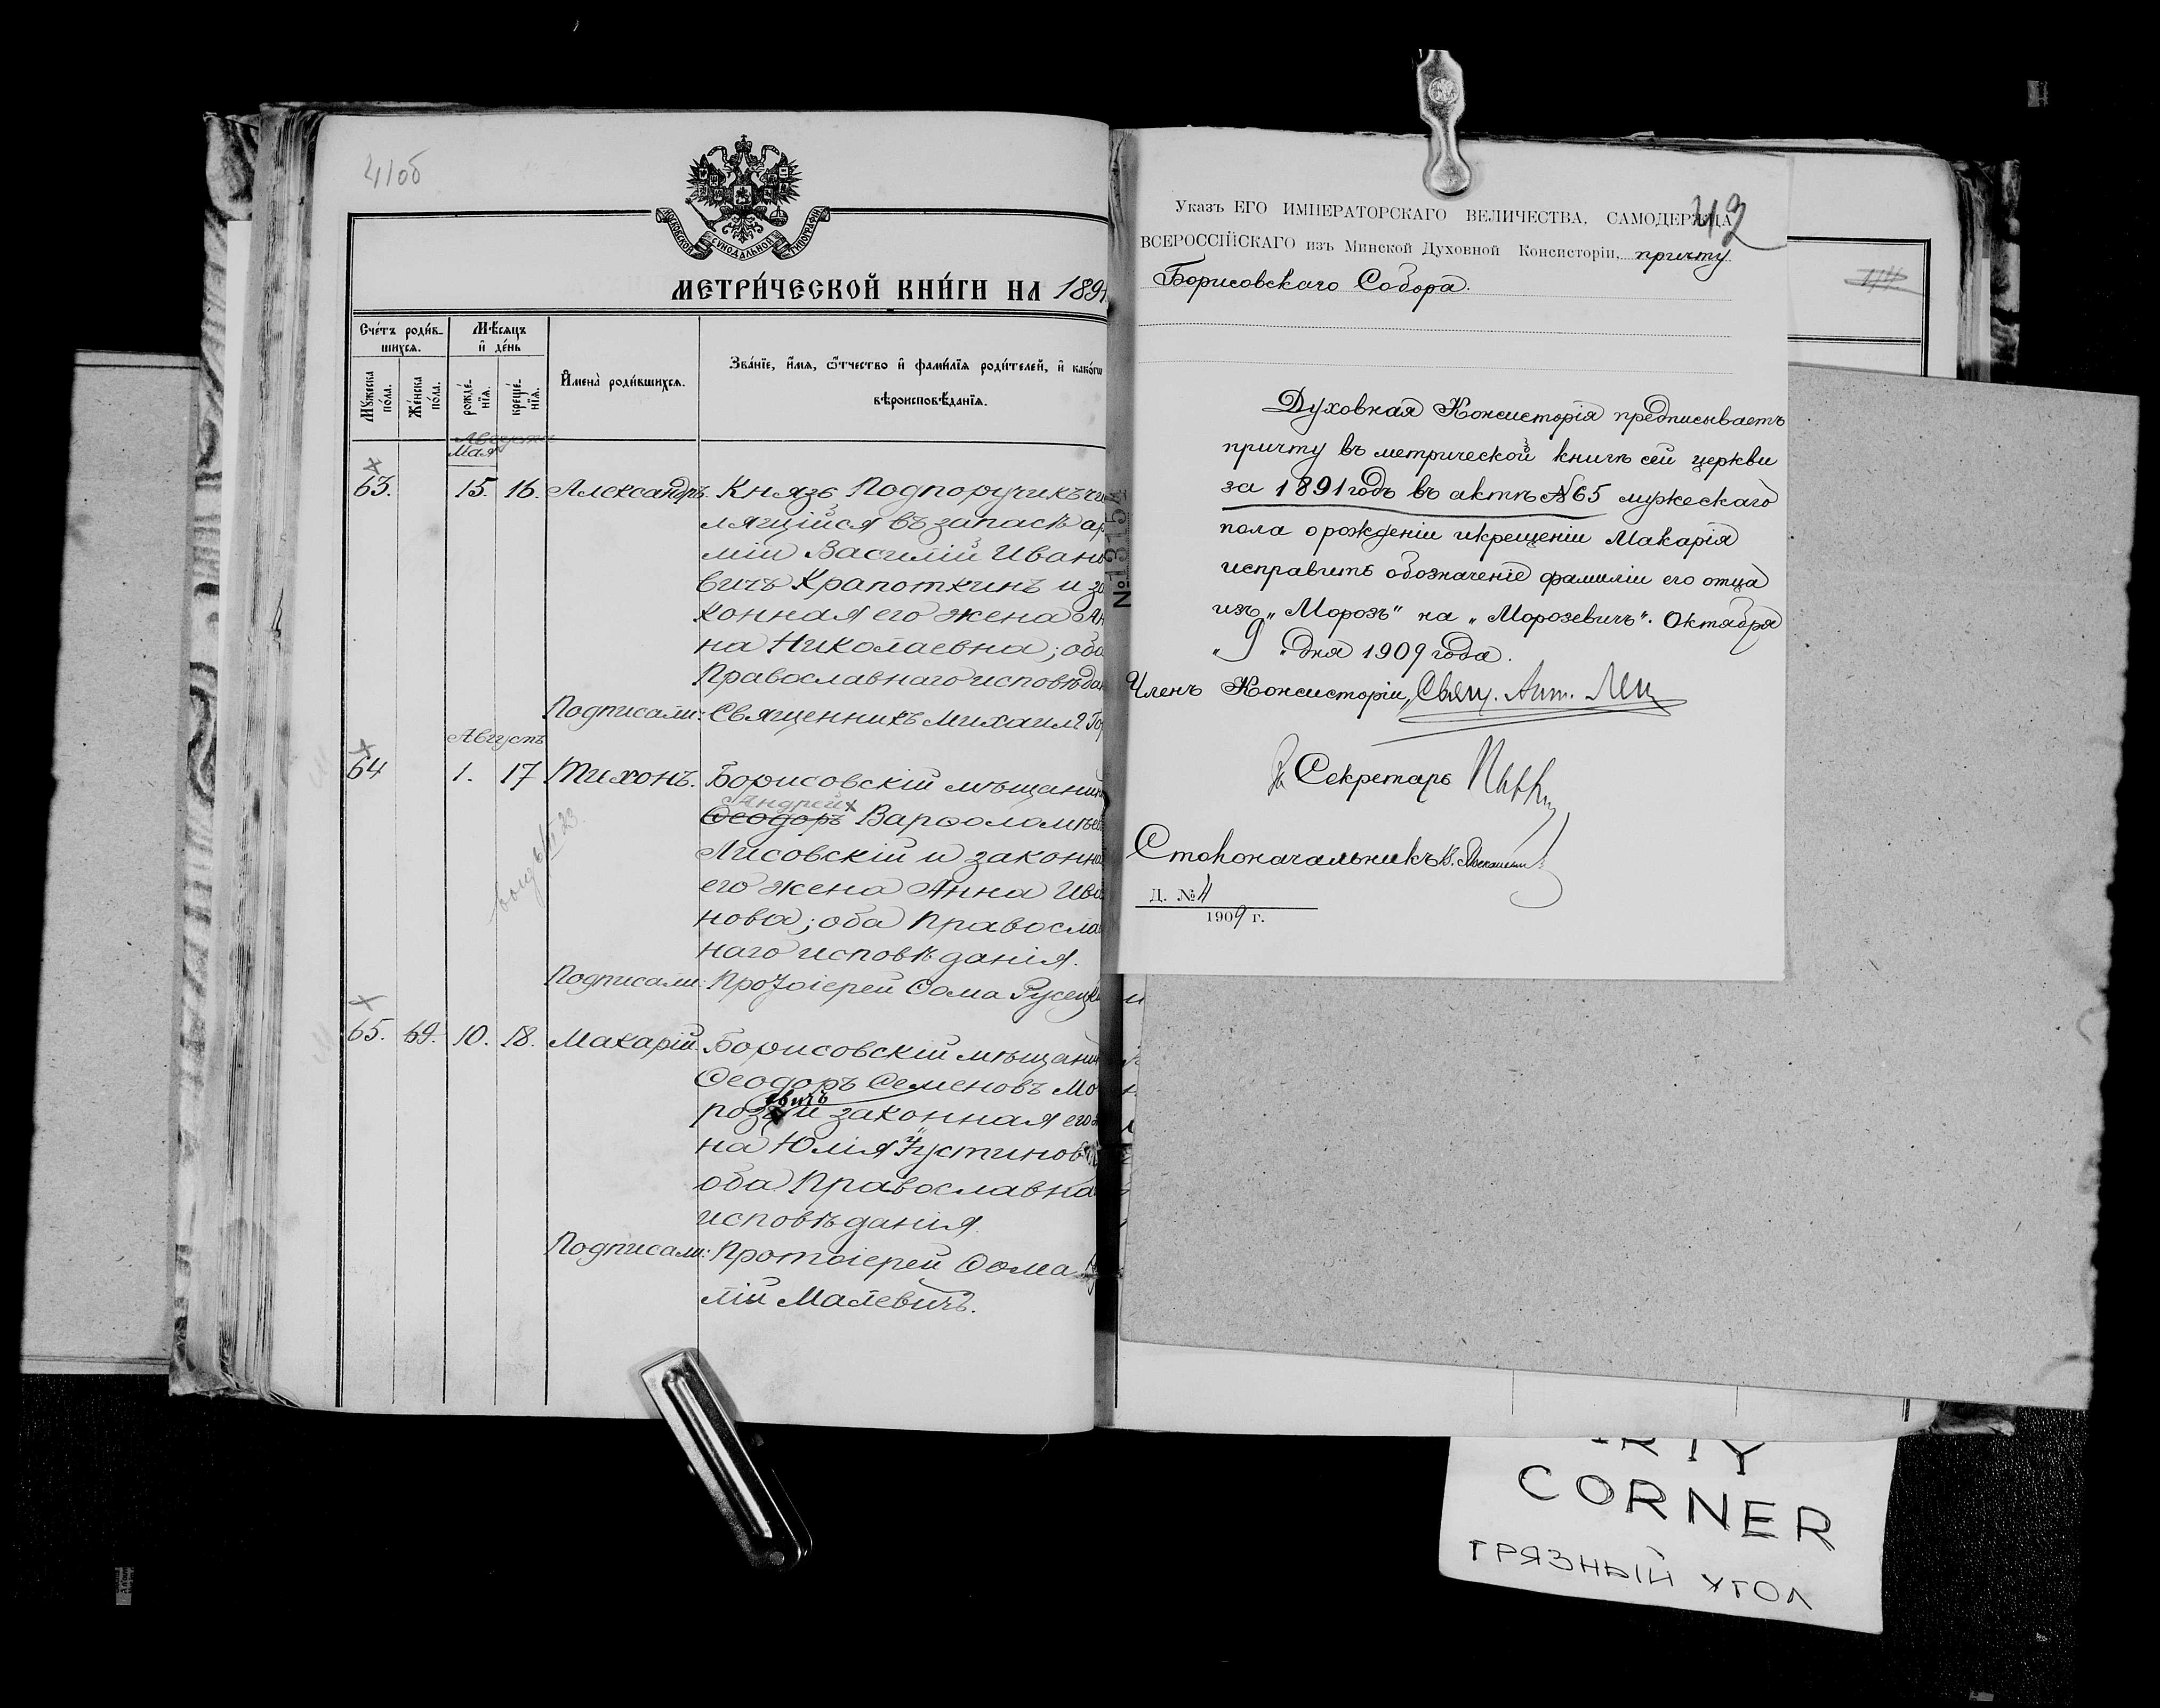 41об
МОСКОВСКОЙ СѴНОДАЛЬНОЙ ТИПОГРАФІИ
МЕТРИ́ЧЕСКОЙ КНИ́ГИ НА 1891
Сче́тъ роди́в-
шихся.
Мѣ́сяцъ
и҆ де́нь
И҆мена̀ роди́вшихся.
Зва́нїе, и҆́мя, ѻ҆́тчество и҆ фами́лїя роди́телей, и҆ како́гѡ
вѣроисповѣ́данїя.
Му́жеска
по́ла.
Же́нска
по́ла.
рожде́-
нїя.
креще́-
нїя.
Августа
Мая
63. 15. 16. Александръ. Князь Подпоручикъ чи
лящійся въ запасѣ ар
міи Василій Ивано
вичъ Крапоткинъ и за
конная его жена Ан
на Николаевна; оба
Православнаго исповѣдан
Подписали: Священникъ Михаилъ
Августъ
64 1. 17 Тихонъ. Борисовскій мѣщанин
Андрей
Ѳеодоръ Варѳоломѣе
Лисовскій и законна
его жена Анна Ива
нова; оба Правосла
наго исповѣданія.
Подписали: Протоіерей Ѳома Русецк
65. 69. 10. 18. Макарій. Борисовскій мѣщанин
Ѳеодоръ Семеновъ Мо
евичъ
розъ и законная его
на Юлія Іустинов
оба Православна
исповѣданія.
Подписали: Протоіерей Ѳома
лій Малевичъ.
Указъ ЕГО ИМПЕРАТОРСКАГО ВЕЛИЧЕСТВА, САМОДЕРЖЦА
ВСЕРОССІЙСКАГО изъ Минской Духовной Консисторіи, причту
Борисовскаго Собора.
Духовная Консисторія предписываетъ
причту въ метрической книгѣ сей церкви
за 1891 годъ въ актѣ №65 мужескаго
пола о рожденіи и крещеніи Макарія
исправить обозначеніе фамиліи его отца
изъ „Морозъ" на „Морозевичъ". Октября
„9" дня 1909 года.
Членъ Консисторіи, Свящ. Ант.
Секретарь
Столоначальникъ
Д. № 4
1909 г.
CORNER
ГРЯЗНЫЙ УГОЛ